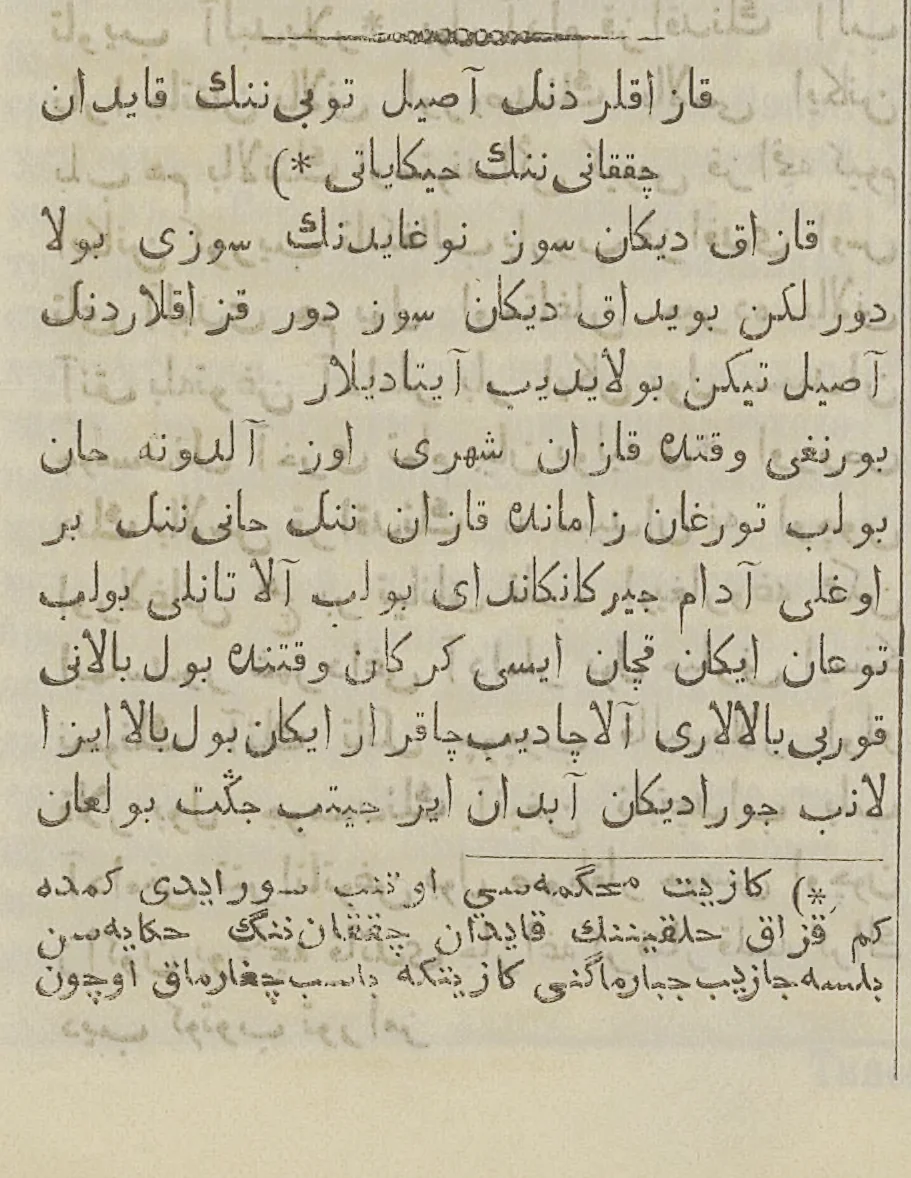 قازاقلردنك آصیل توبی‌ننك قایدان
چققانی‌ننك حیكایاتی *)
قازاق دیكان سوز نوغایدنك سوزی بولا
دور لكن بویداق دیكان سوز دور قزاقلاردنك
آصیل تیكن بولایدیب آیتادیلار
بورنغی وقتده قازان شهری اوز آلدونه حان
بولب تورغان زامانده قازان ننك حانی‌ننك بر
اوغلی آدام جیركانكاندای بولب آلا تانلی بولب
توعان ایكان قچان ایسی كركان وقتنده بول بالانی
قوربی‌بالالاری آلاچادیب‌چاقرار ایكان بول‌بالا ایزا
لانب جورادیكان آبدان ایر جیتب جكت بولعان
*) كازیت محكمه‌سی اوتنب سورایدی كمده
كم قزاق حلقیننك قایدان چققان‌ننگ حكایه‌سن
بلسه‌جازیب‌جبارماگنی كازیتكه باسب‌چغارماق اوچون